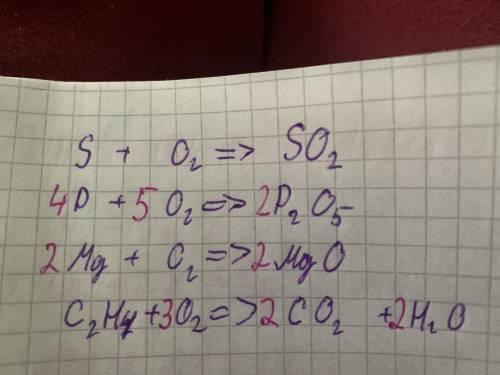 S + O₂ => SO₂
4P + 5O₂ => 2P₂O₅
2Mg + O₂ => 2MgO
C₂H₄ + 3O₂ => 2CO₂ + 2H₂O